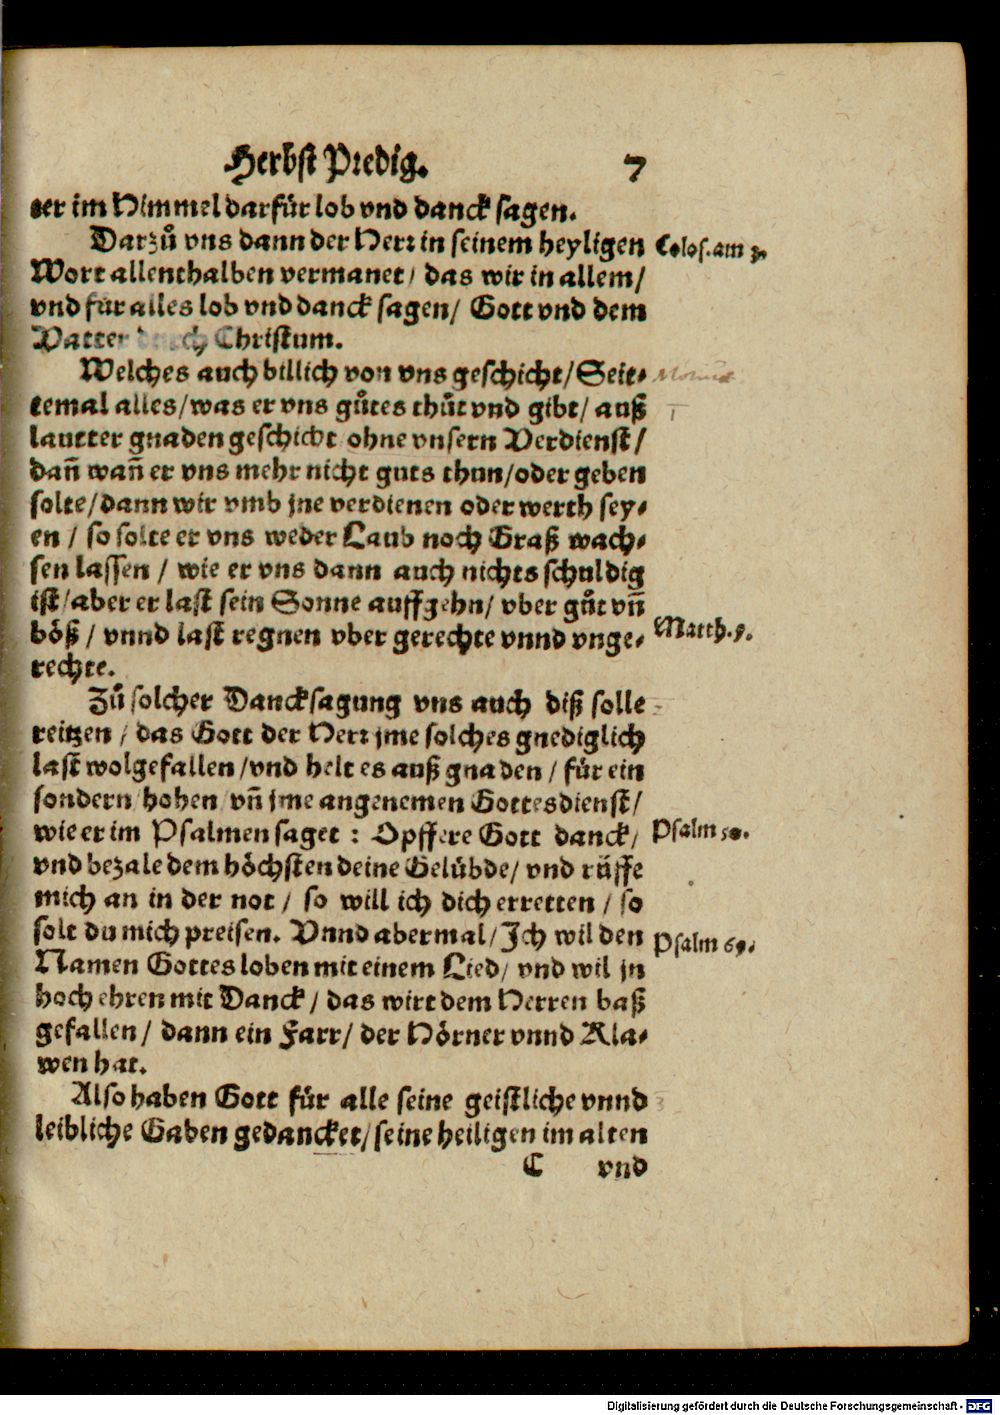 Herbst Predig. 7
ter im Himmel darfür lob vnd danck sagen.
Darzů vns dann der Herr in seinem heyligen Colos. am 3.
Wort allenthalben vermanet/ das wir in allem/
vnd für alles lob vnd danck sagen/ Gott vnd dem
Vatter Christum.
Welches auch billich von vns geschicht/ Seit-
temal alles/ was er vns gůtes thůt vnd gibt/ auß
lautter gnaden geschicht ohne vnsern Verdienst/
dañ wañ er vns mehr nicht guts thun/ oder geben
solte/ dann wir vmb jne verdienen oder werth sey-
en / so solte er vns weder Laub noch Graß wach-
sen lassen / wie er vns dann auch nichts schuldig
ist/ aber er last sein Sonne auffgehn/ vber gůt vñ
böß / vnnd last regnen vber gerechte vnnd vnge- Matth. 5.
rechte.
Zů solcher Dancksagung vns auch diß solle
reitzen / das Gott der Herr jme solches gnediglich
last wolgefallen/ vnd helt es auß gnaden / für ein
sondern hohen vñ jme angenemen Gottesdienst/
wie er im Psalmen saget : Opffere Gott danck/ Psalm 50.
vnd bezale dem höchsten deine Gelübde/ vnd rüffe
mich an in der not / so will ich dich erretten / so
solt du mich preisen. Vnnd abermal/ Ich wil den Psalm 69.
Namen Gottes loben mit einem Lied/ vnd wil jn
hoch ehren mit Danck / das wirt dem Herren baß
gefallen / dann ein Farr/ der Hörner vnnd Kla-
wen hat.
Also haben Gott für alle seine geistliche vnnd
leibliche Gaben gedancket/ seine heiligen im alten
C vnd
Digitalisierung gefördert durch die Deutsche Forschungsgemeinschaft - DFG